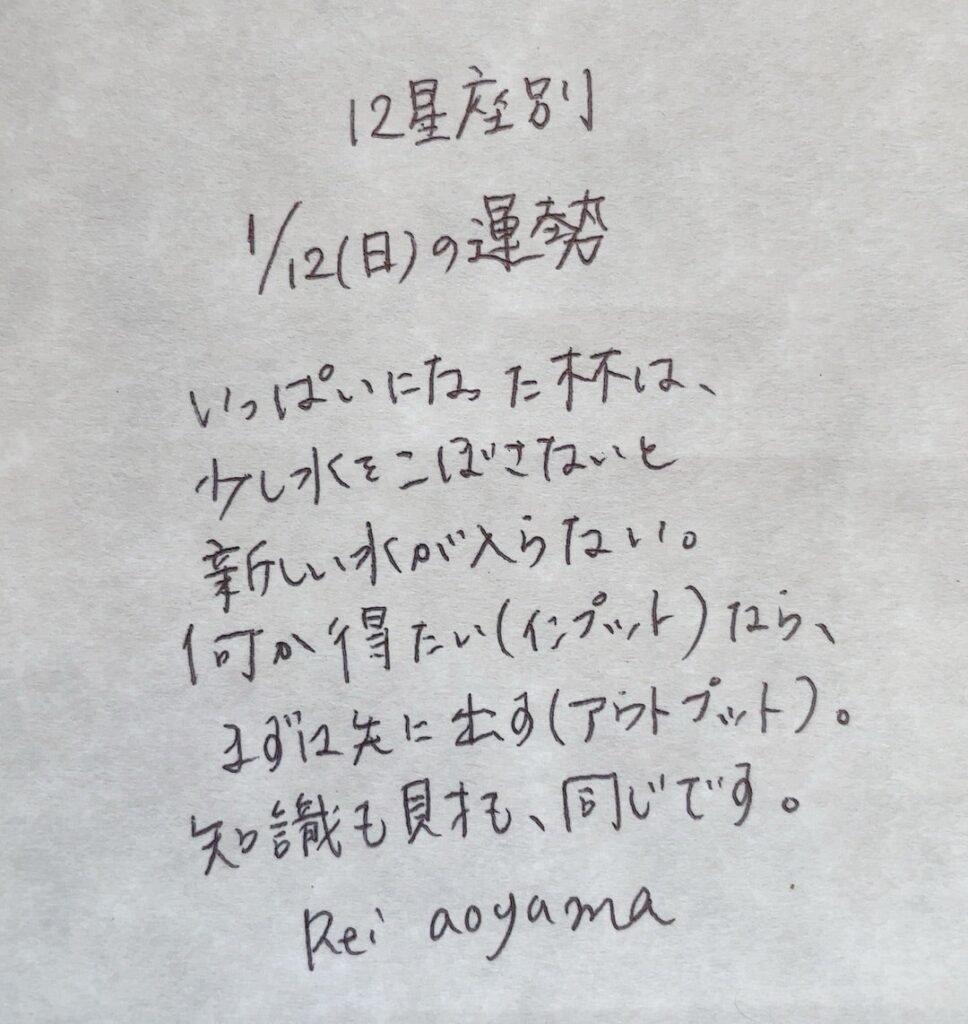 12星座別
1/12(日)の運勢
いっぱいになった杯は、
少し水をこぼさないと
新しい水が入らない。
何か得たい(インプット)なら、
まずは先に出す(アウトプット)。
知識も財も、同じです。
Rei aoyama